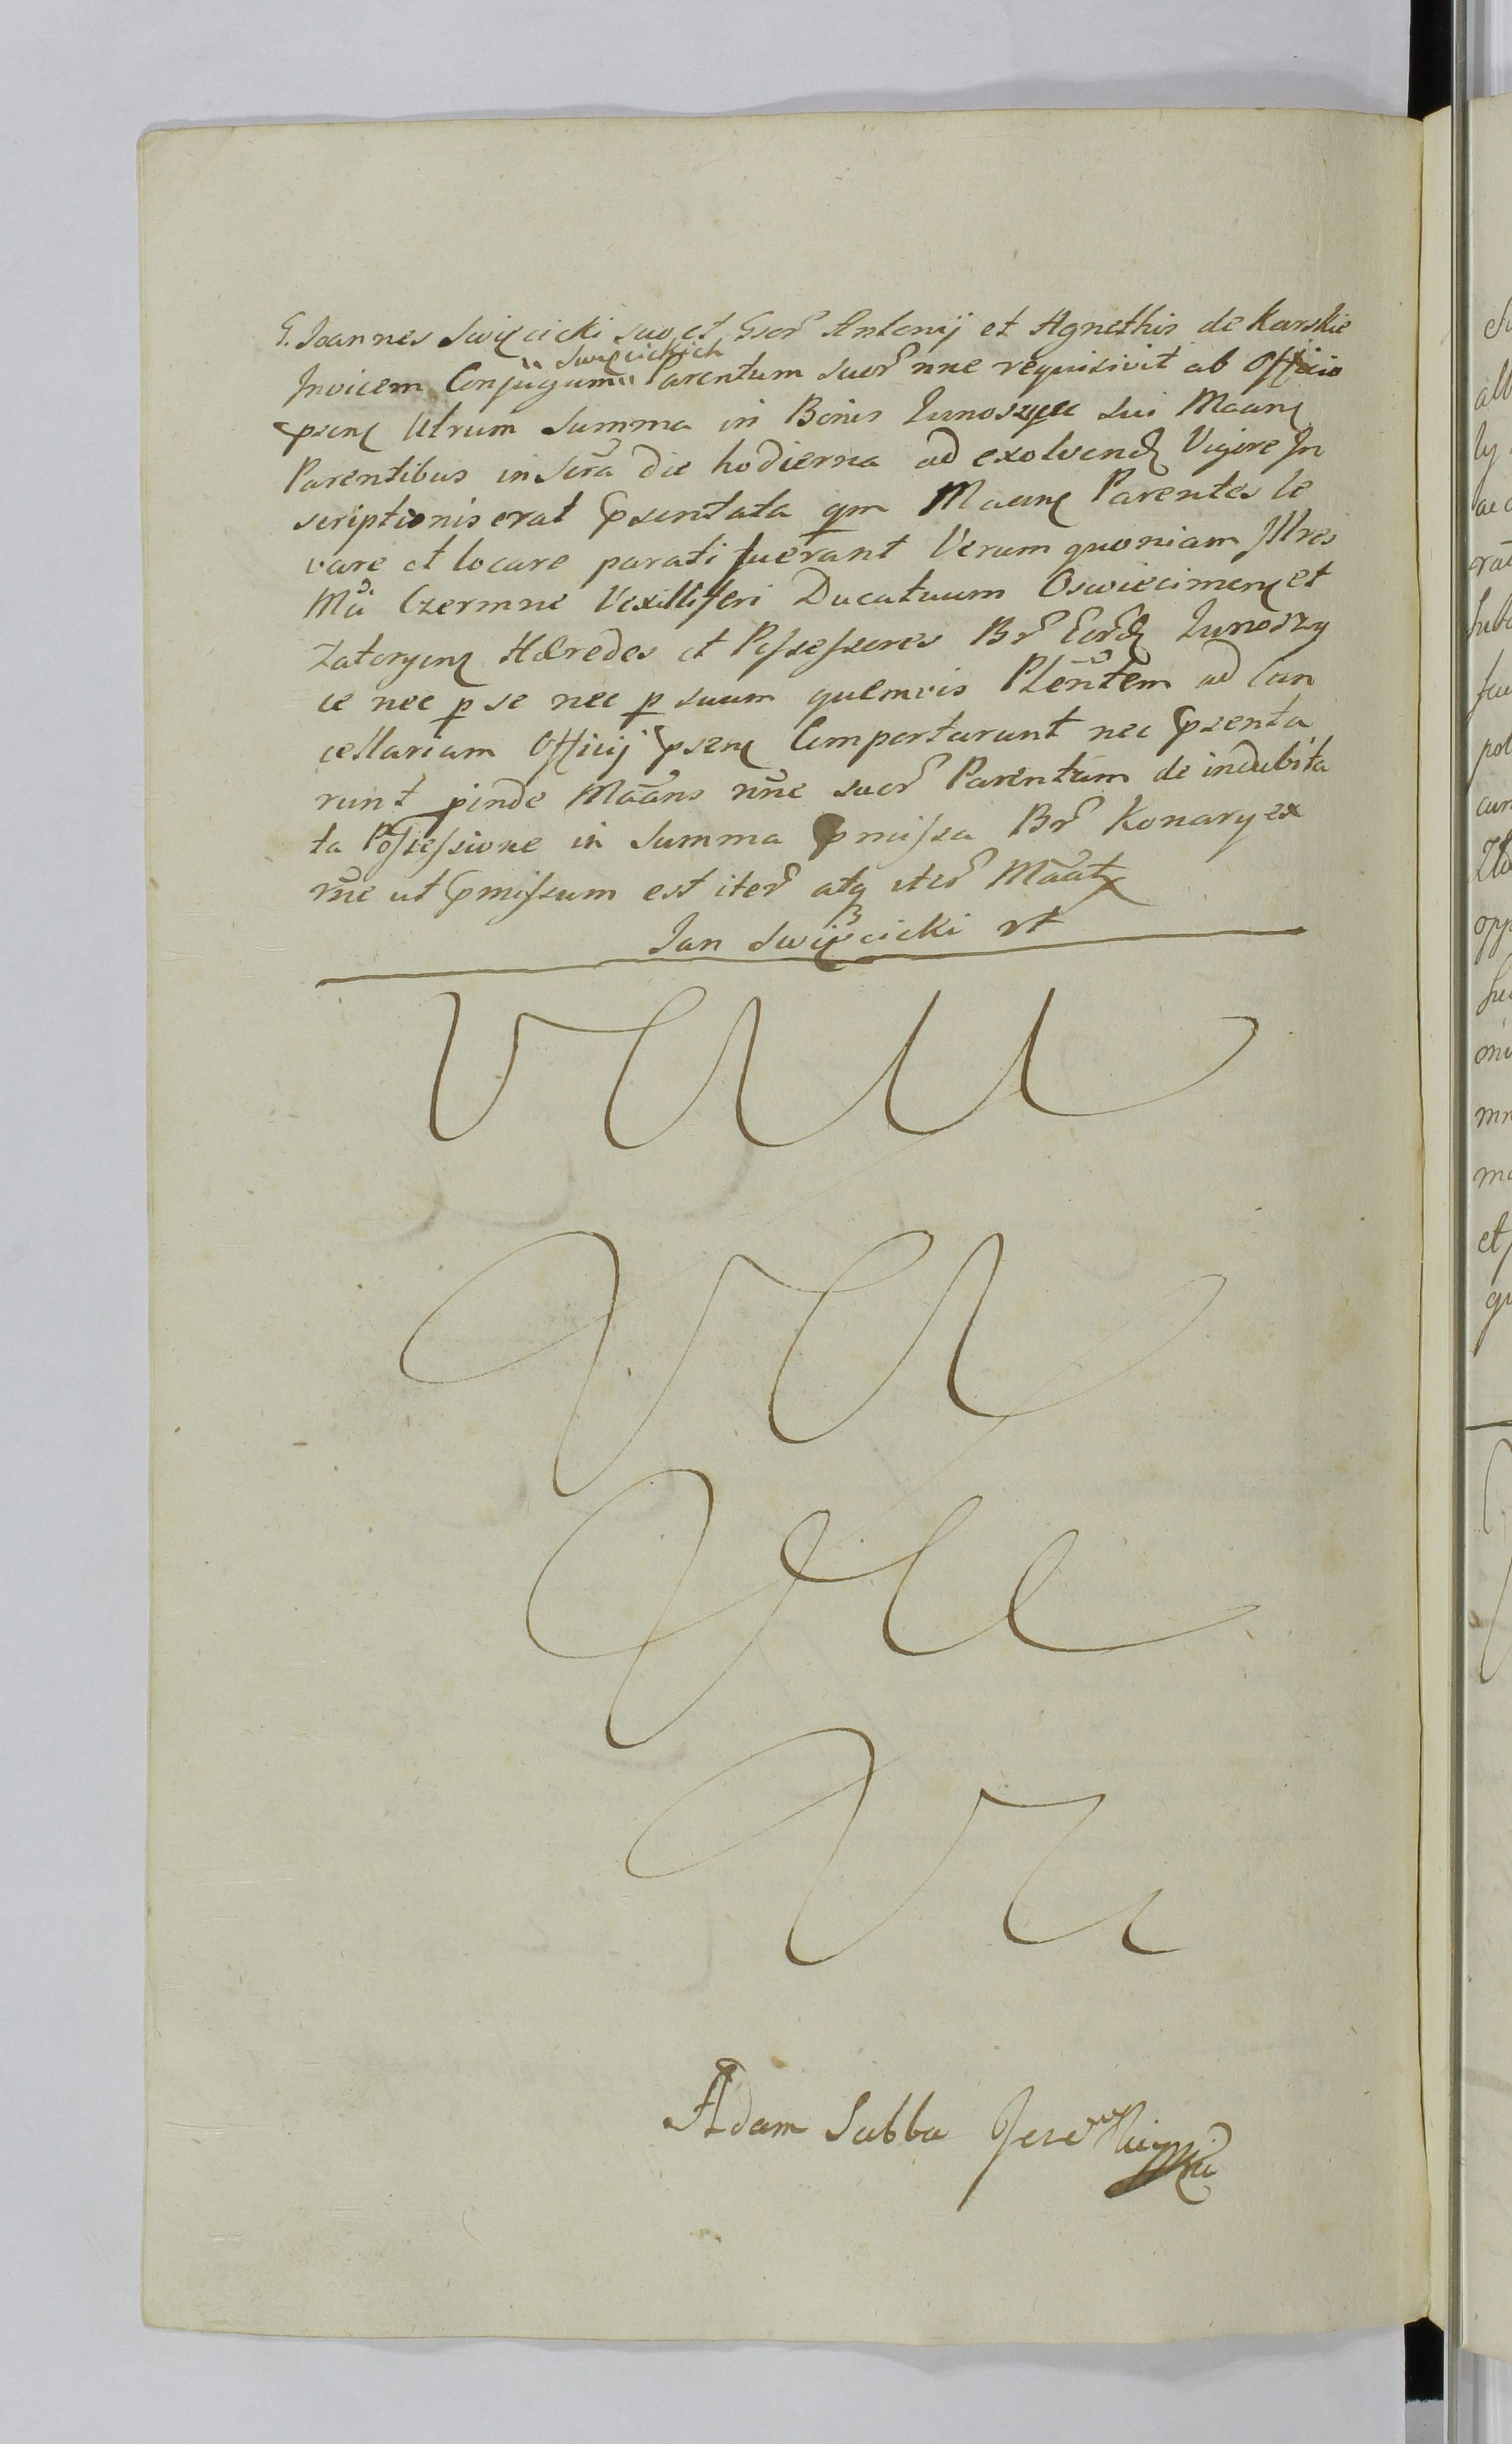 G. Joannes Swięcicki suo et Gsor Antonij et Agnethis de Karskie
Swięcickich
Invicem Conjugum Parentum suor nne requisivit ab Officio
psenę Utrum Summa in Bonis Junoszyce sui Maanę
Parentibus inscra die hodierna ad exolvendę Vigore In
scriptionis erat psentata qm Maanę Parentes le
vare et locare parati fuerant Verum quoniam Illres
Mci Czermne Vexilliferi Ducatuum Oswiecimenę et
Zatoryenę Hæredes et Possessores Br Eordę Junoszy
ce nec p se nec p suum quemvis Plēntem ad Can
cellariam Officij psenę Comportarunt nec psenta
runt pinde Maans nne suor Parentum de indubita
ta Possessione in Summa pmissa Br Konary ex
rne ut pmissum est iter atq iter Maat
Jan Swięcicki
Adam Subba